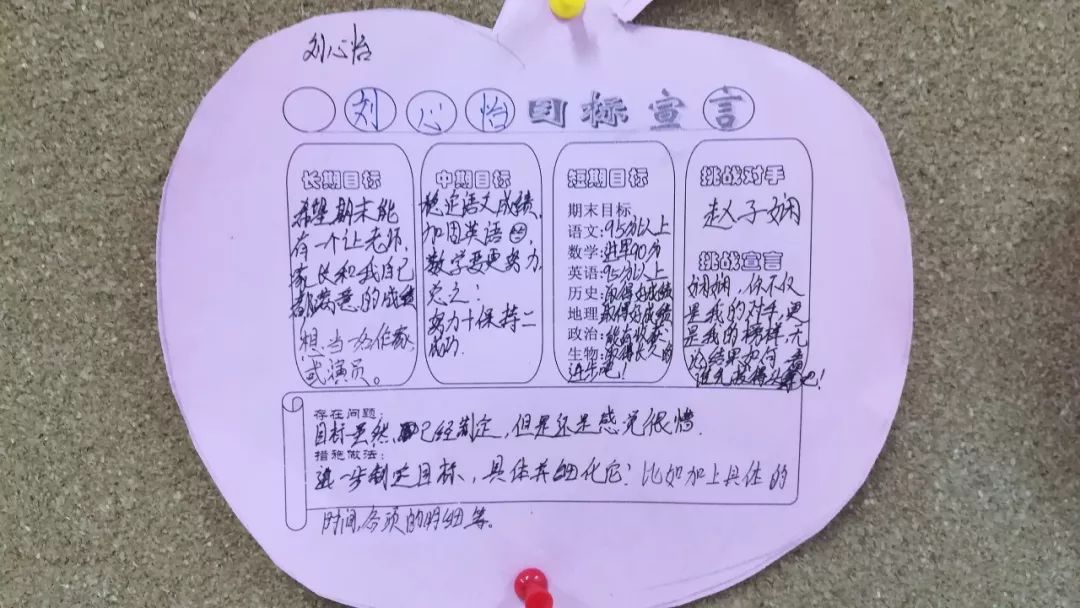 刘心怡
刘心怡目标宣言
长期目标
希望期末能
有一个让老师、
家长和我自己
都满意的成绩
想当个作家
或演员。
中期目标
稳定语文成绩,
加固英语
数学要更努力
总之:
努力+保持=
成功.
短期目标
期末目标
语文:95分以上
数学:进军90分
英语:95分以上
历史:取得好成绩
地理:取得好成绩
政治:能有收获
生物:取得长久的
进步吧!
挑战对手
赵子娴
挑战宣言
娴娴,你不仅
是我的对手,更
是我的榜样,无
论结果如何,
吧!
存在问题:
目标虽然已经制定,但是还是感觉很懵.
措施做法:
进一步制定目标,具体并细化它:比如加上具体的
时间,各项的明细等。